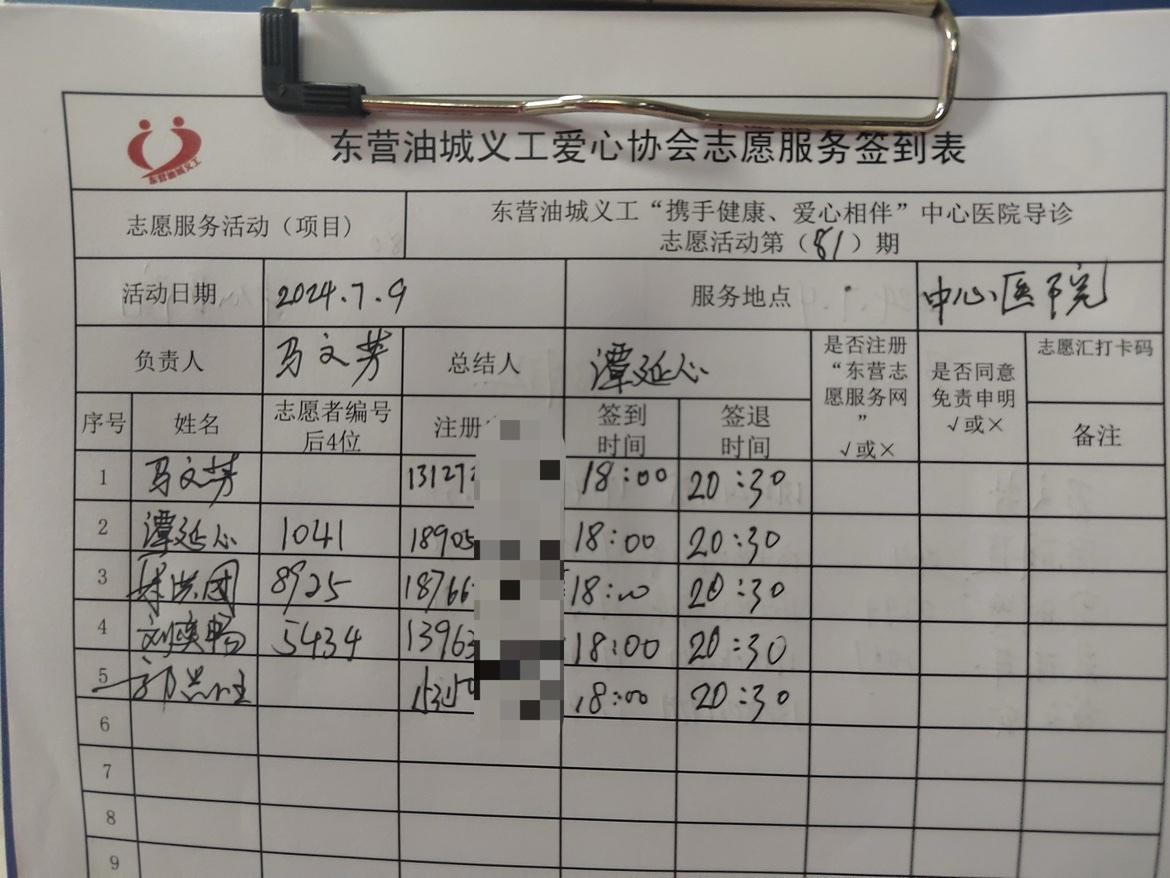 东营油城义工
东营油城义工爱心协会志愿服务签到表
志愿服务活动（项目）
东营油城义工“携手健康、爱心相伴”中心医院导诊
志愿活动第（81）期
活动日期 2024.7.9 服务地点 中心医院
负责人 马文芳 总结人 谭延心
是否注册
“东营志
愿服务网
”
√或×
是否同意
免责申明
√或×
志愿汇打卡码
序号 姓名
志愿者编号
后4位
注册
签到
时间
签退
时间
备注
1 马文芳 13127 18:00 20:30
2 谭延心 1041 18905 18:00 20:30
3 8925 18766 18:00 20:30
4 刘 5434 13963 18:00 20:30
5 郭 15315 18:00 20:30
6
7
8
9